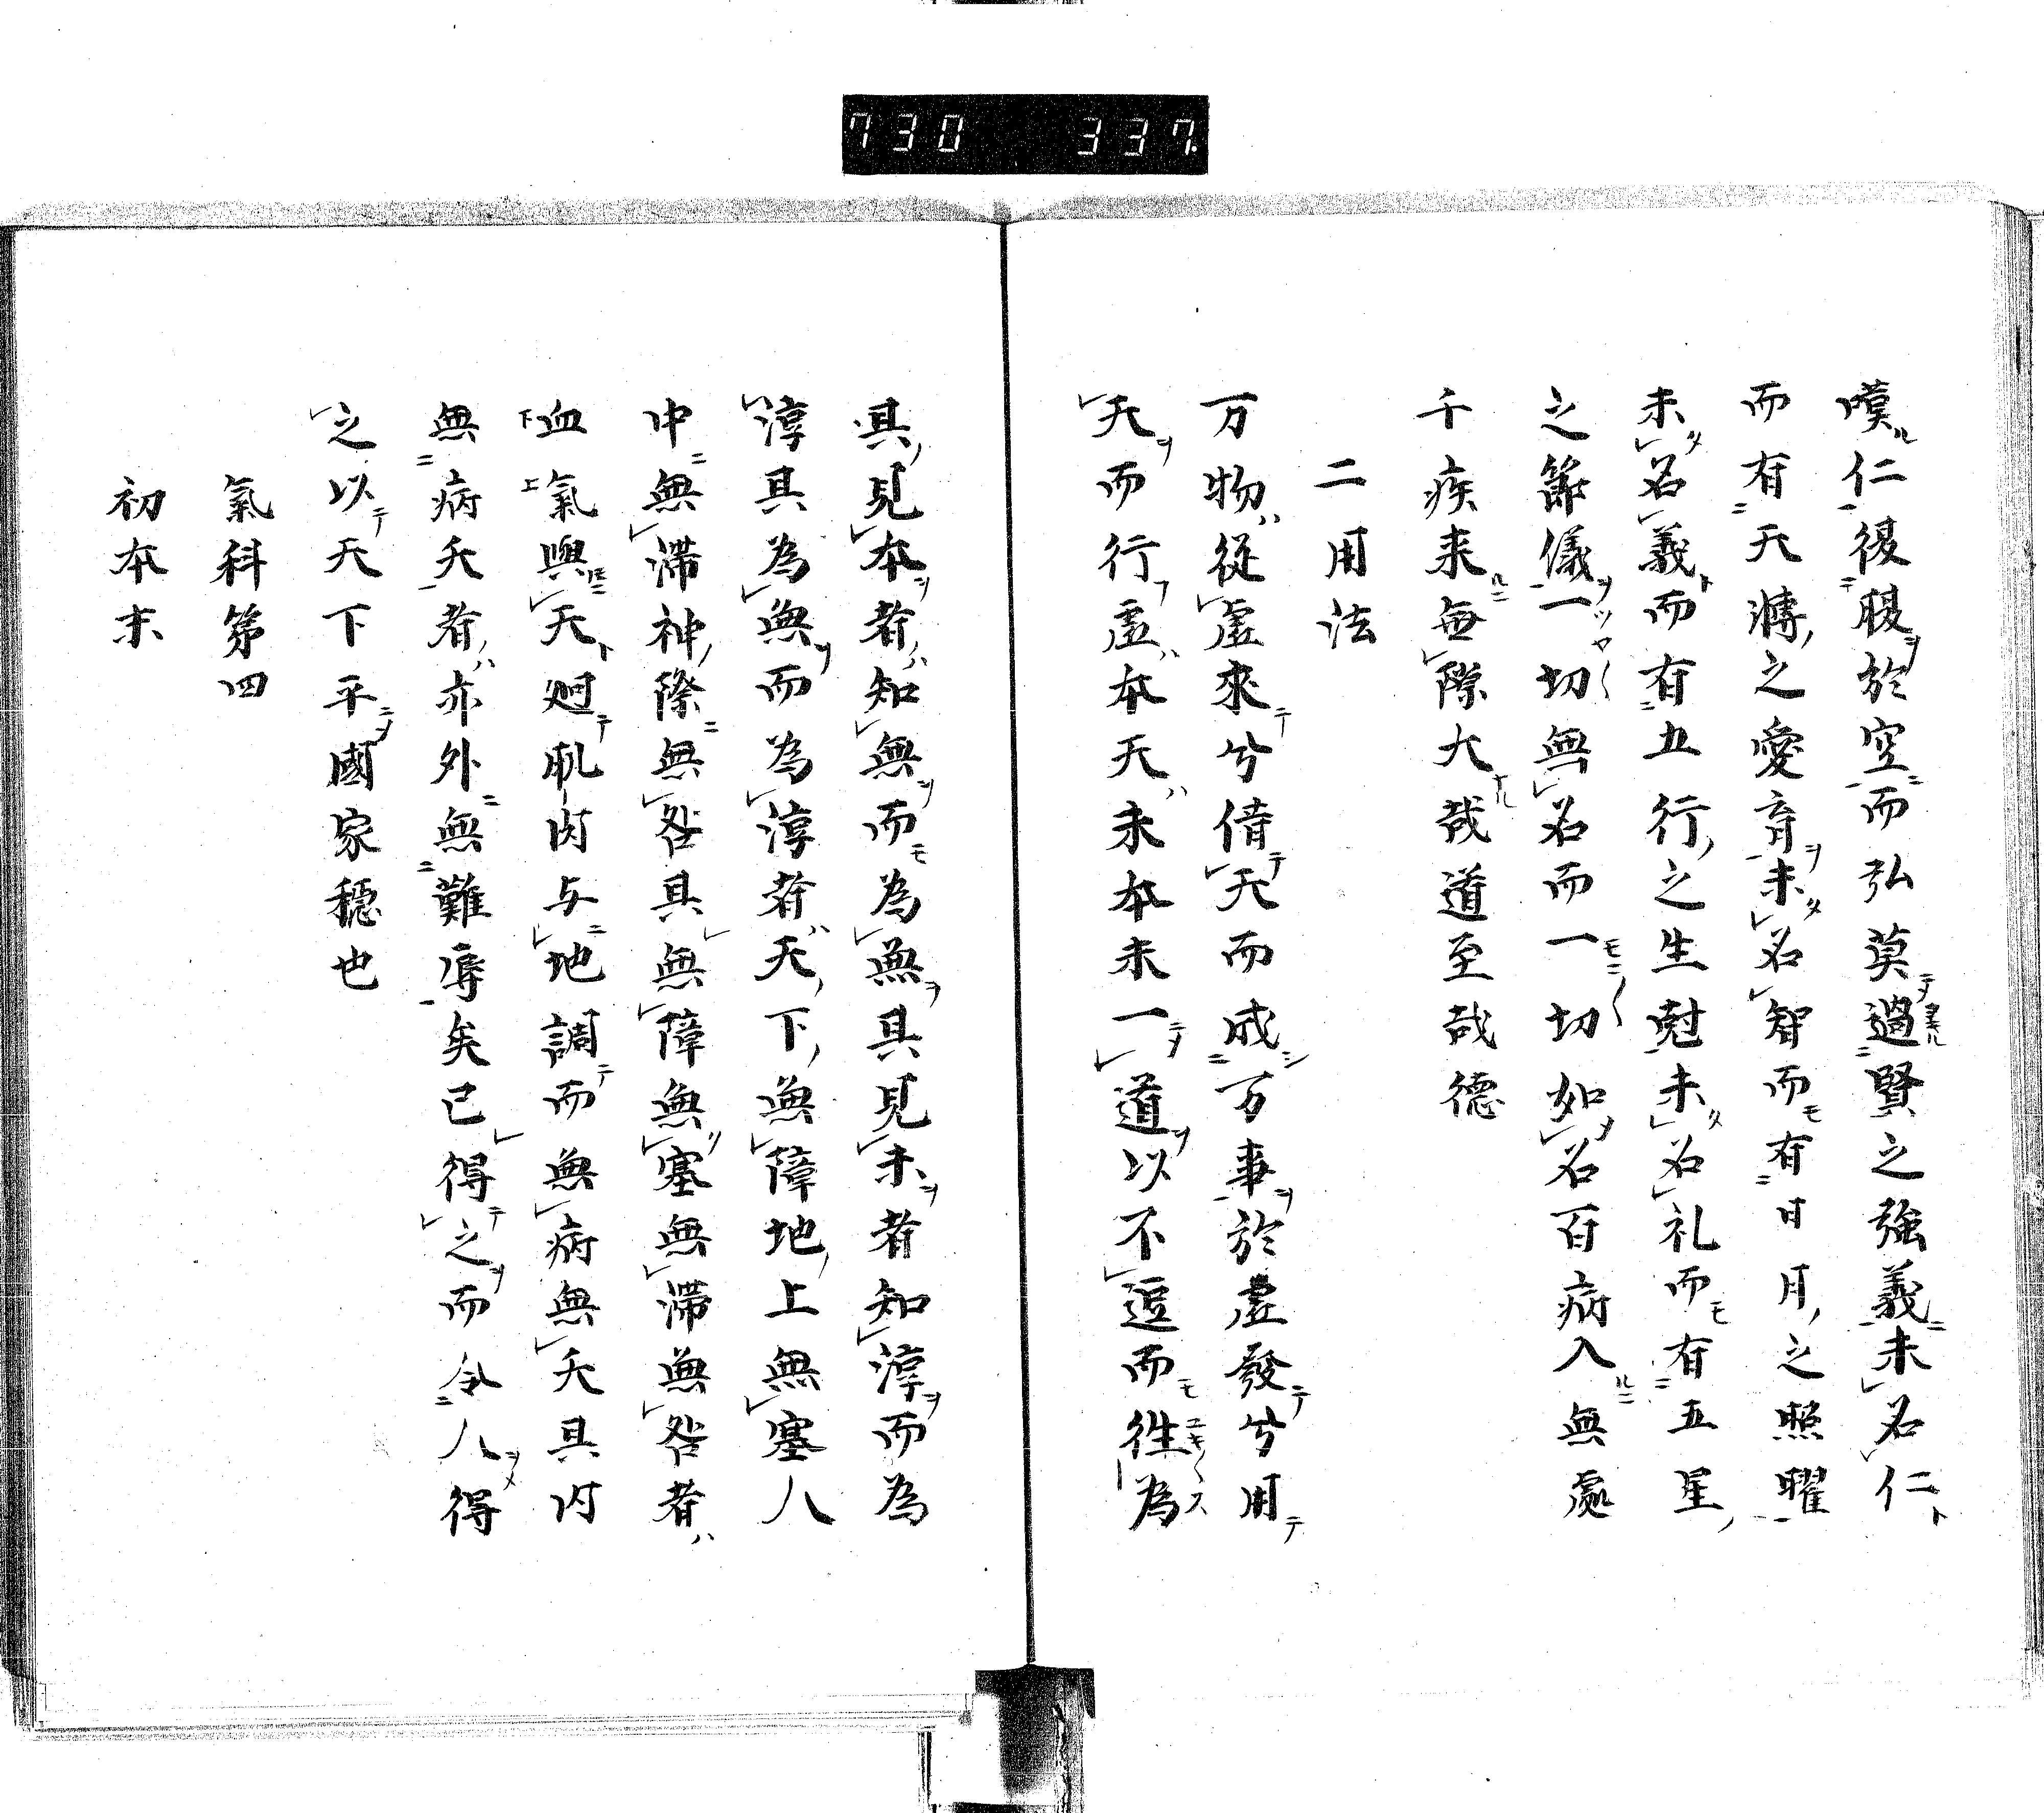 730 337.
嘆仁復腹於空而弘莫過賢之強義未名仁
而有天溥之愛育未名智而有日月之照曜
未名義而有五行之生尅未名礼而有五星
之節儀一切無名而一切如名百病入無處
千疾来無際大哉道至哉德
二用法
万物從虛來兮倩天而成万事於虛發兮用
天而行虛本天末本末一道以不逗而往為
具見本者知無而為無具見末者知淳而為
淳具為無而為淳者天下無障地上無塞人
中無滞神際無咎具無障無塞無滞無咎者
血氣與天廻肌肉与地調而無病無夭具内
無病夭者亦外無難辱矣已得之而令人得
之以天下平國家穩也
氣科第四
初本末